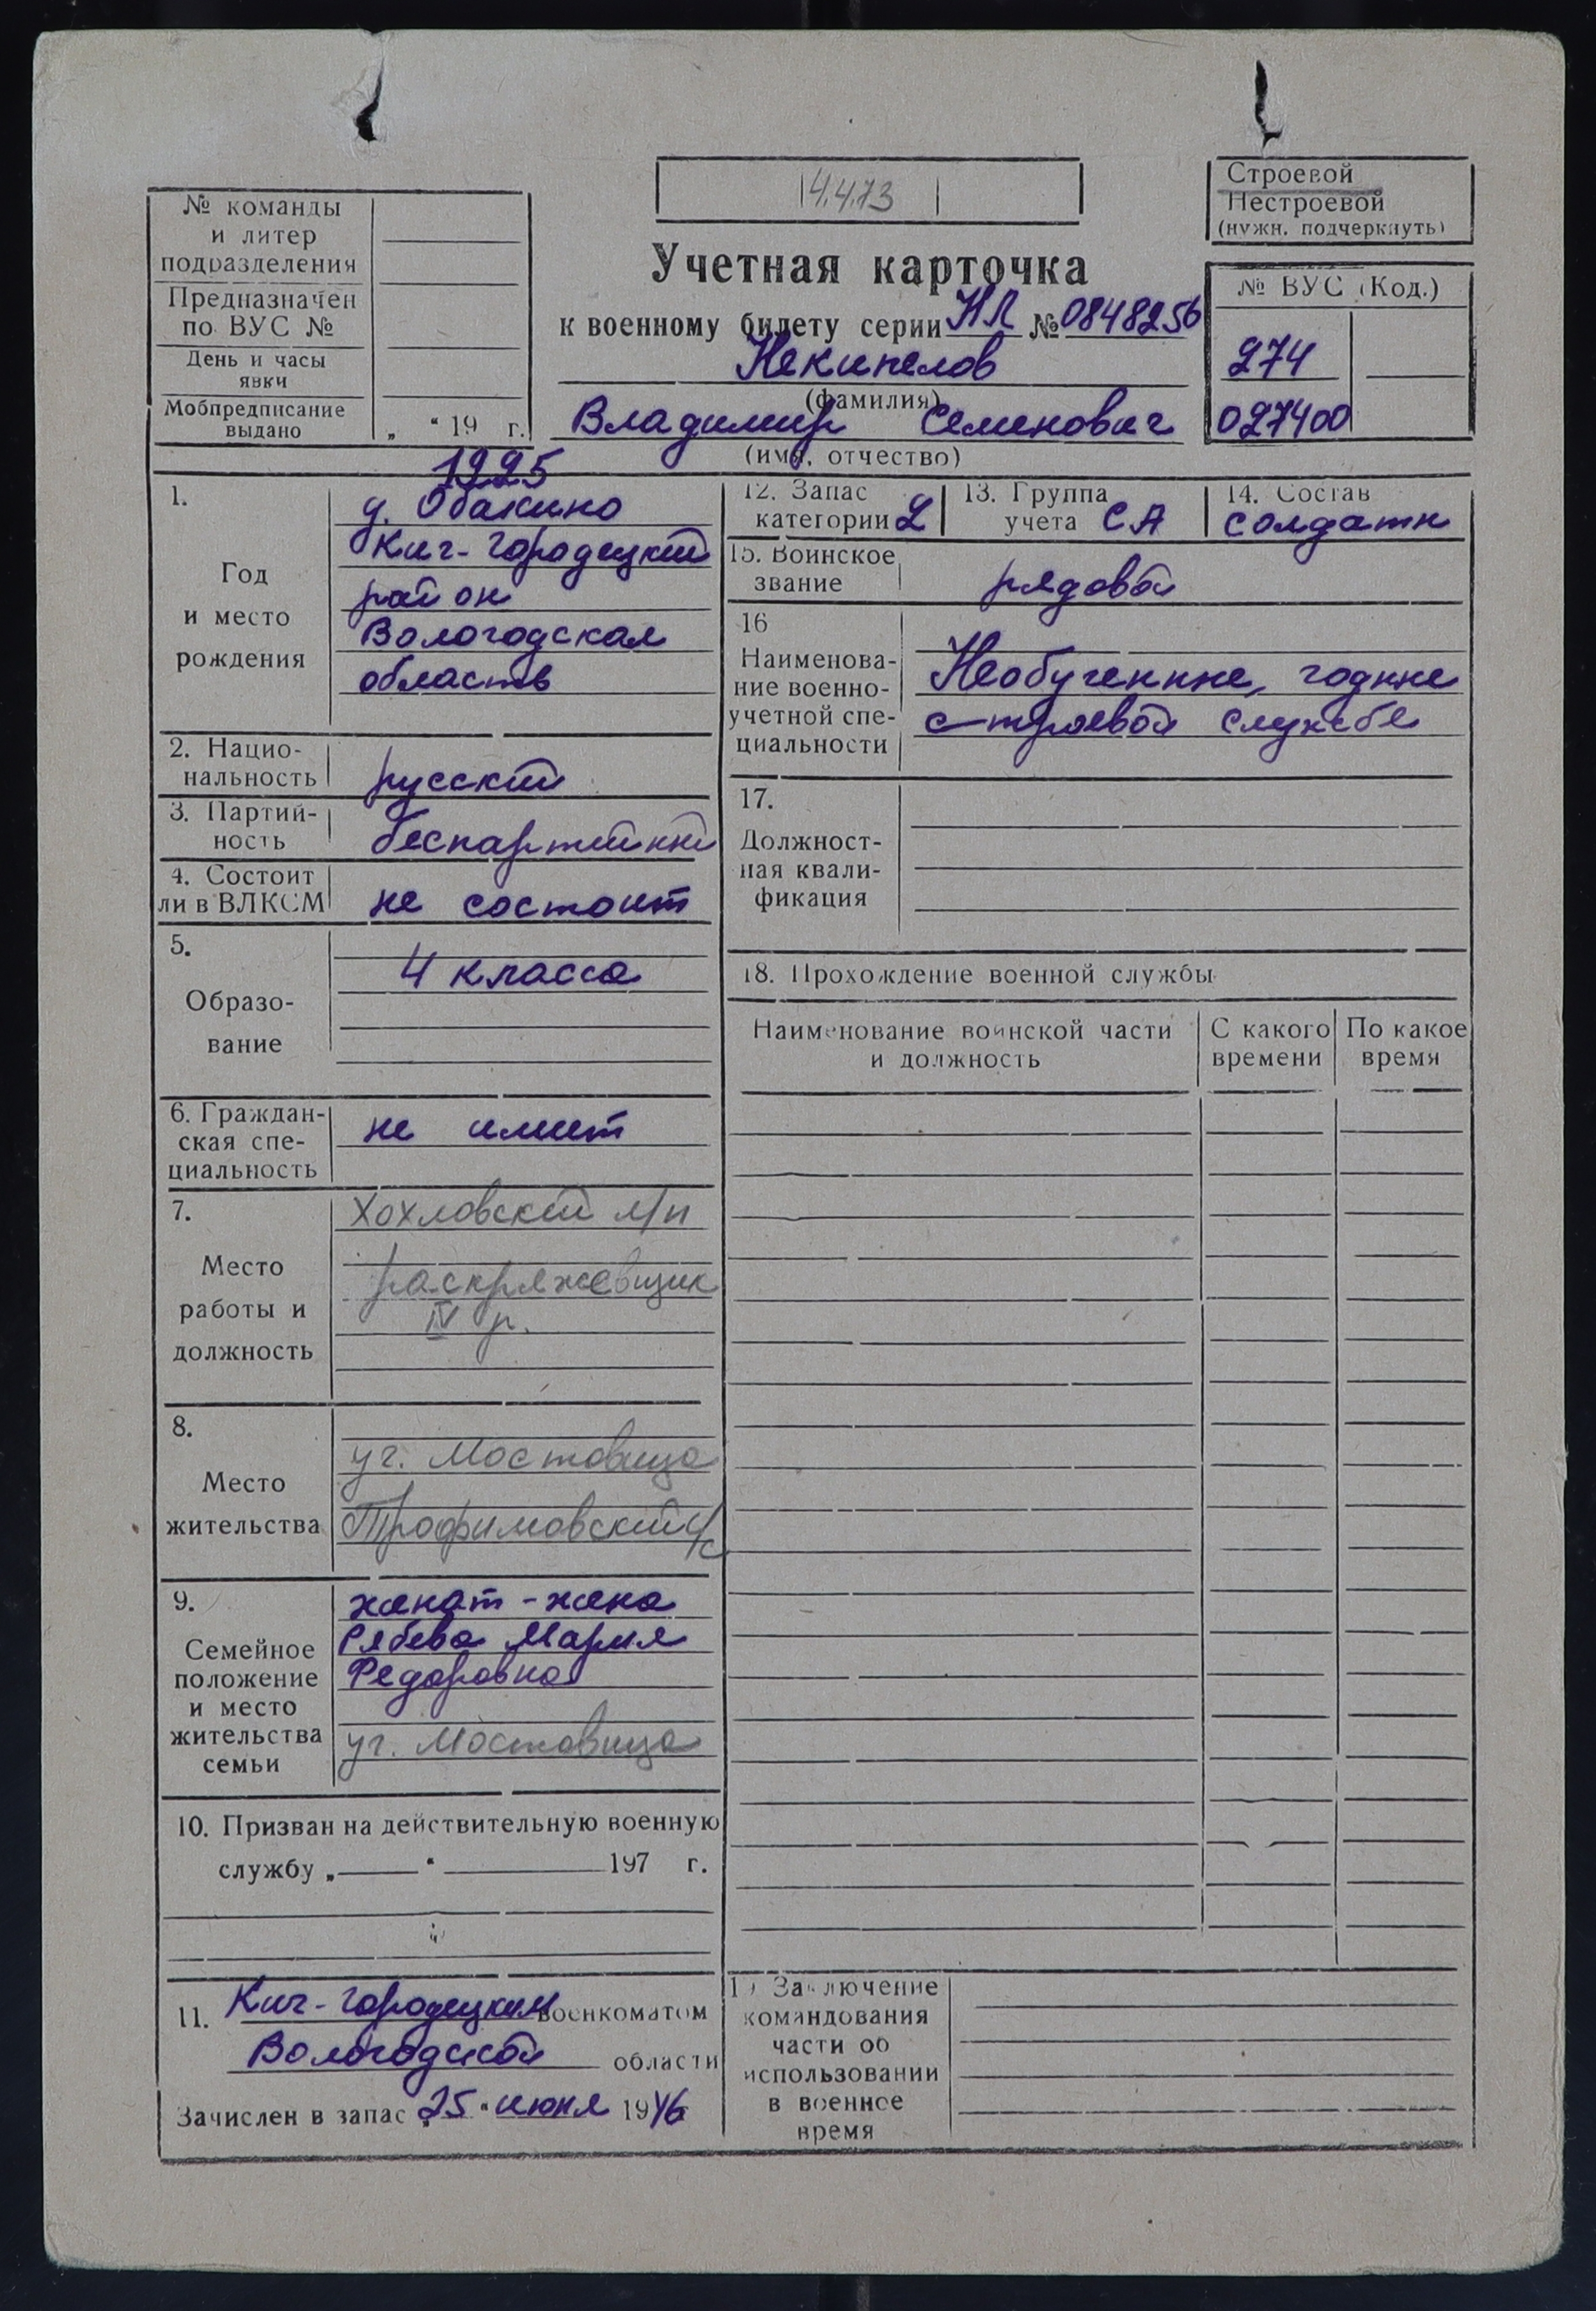 4.4.73
Строевой
Нестроевой
(нужн. подчеркнуть)
№ команды
и литер
подразделения
Предназначен
по ВУС №
День и часы
явки
Мобпредписание
выдано „ “ 19 г.
Учетная карточка
к военному билету серии НЛ № 0848256
Некипелов
(фамилия)
Владимир Семенович
(имя, отчество)
№ ВУС (Код.)
274
027400
1.
Год
и место
рождения
1925
д. Обакино
Кич-Городецкий
район
Вологодская
область
2. Нацио-
нальность русский
3. Партий-
ность беспартийный
4. Состоит
ли в ВЛКСМ не состоит
5.
Образо-
вание
4 класса
6. Граждан-
ская спе-
циальность
не имеет
7.
Место
работы и
должность
Хохловский л/п
раскряжевщик
IV р.
8.
Место
жительства
уч. Мостовица
Трофимовский с/с
9.
Семейное
положение
и место
жительства
семьи
женат - жена
Рябева Мария
Федоровна
уч. Мостовица
10. Призван на действительную военную
службу „ “ 197 г.
11. Кич-Городецким военкоматом
Вологодской области
Зачислен в запас „25“ июня 1946
12. Запас
категории 2
13. Группа
учета СА
14. Состав
солдаты
15. Воинское
звание рядовой
16
Наименова-
ние военно-
учетной спе-
циальности
Необученные, годные
строевой службе
17.
Должност-
ная квали-
фикация
18. Прохождение военной службы
Наименование воинской части
и должность
С какого
времени
По какое
время
19 Заключение
командования
части об
использовании
в военное
время